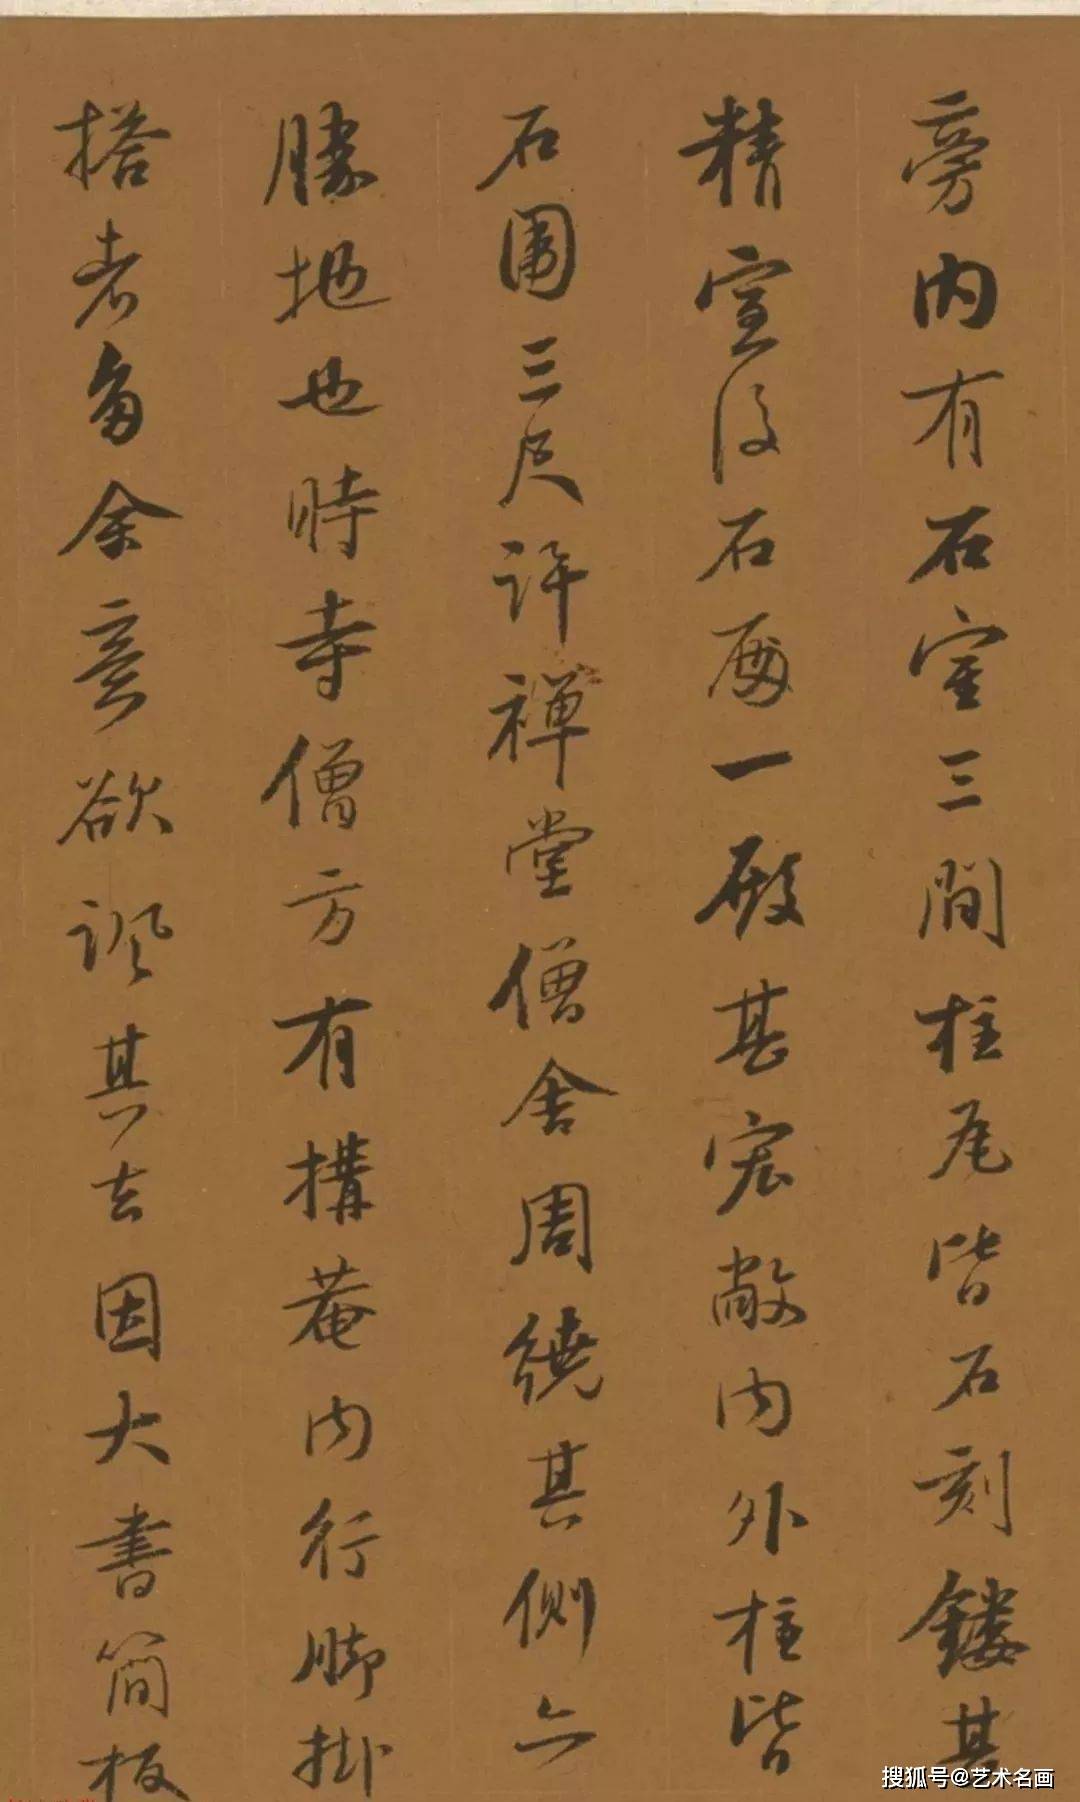 旁内有石室三間柱瓦皆石刻鏤甚
精室後石砌一殿甚宏敞内外柱皆
石圍三尺許禪堂僧舍周繞其側亦
勝地也時寺僧方有搆菴内行脚掛
搭者多余意欲諷其去因大書簡板
搜狐号@艺术名画